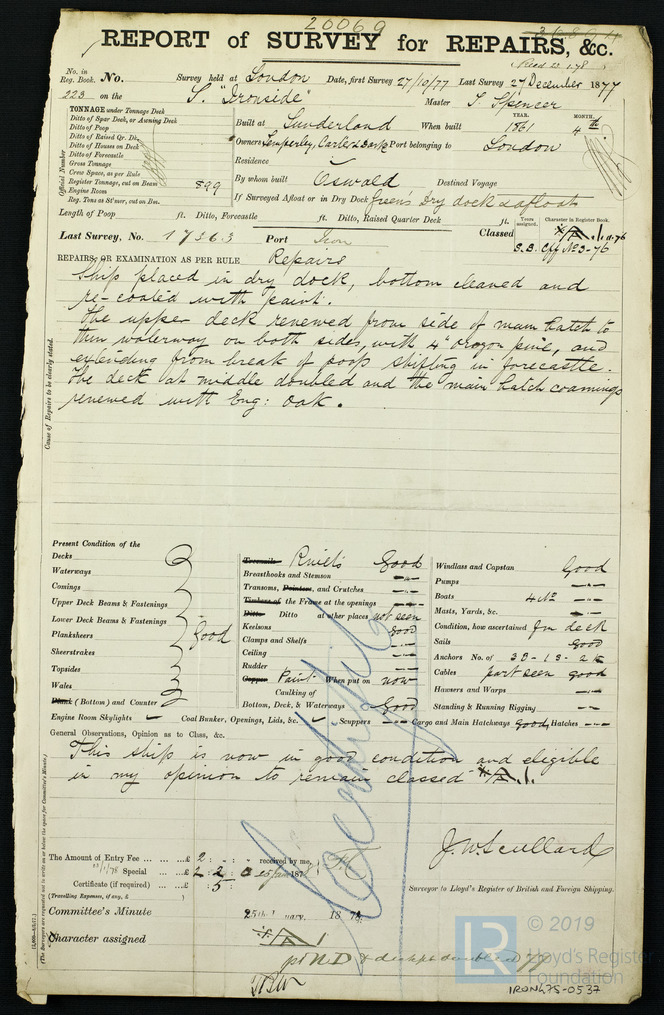 20069
REPORT of SURVEY for REPAIRS, &c.
No. in Reg. Book. No. Survey held at London Date, first Survey 27/10/77 Last Survey 27 December 1877
223 on the S. "Ironside" Master T. Spencer
TONNAGE under Tonnage Deck
Ditto of Spar Deck, or Awning Deck
Ditto of Poop
Ditto of Raised Qr. Dk.
Ditto of Houses on Deck
Ditto of Forecastle
Gross Tonnage
Crew Space, as per Rule
Register Tonnage, cut on Beam 899
Engine Room
Reg. Tons as St'mer, cut on Bm.
Official Number
Built at Sunderland When built YEAR. 1861 MONTH. 4th
Owners Temperley, Carter & Dark Port belonging to London
Residence
By whom built Oswald Destined Voyage
If Surveyed Afloat or in Dry Dock Green's Dry dock & afloat
Length of Poop ft. Ditto, Forecastle ft. Ditto, Raised Quarter Deck ft.
Years assigned. Character in Register Book.
Last Survey, No. 17363 Port Iron Classed A.1. 11.76
S.B. Cff No3-76
REPAIRS, OR EXAMINATION AS PER RULE Repairs
Ship placed in dry dock, bottom cleaned and
re-coated with paint.
The upper deck renewed from side of main hatch to
thin waterway on both sides, with 4" oregon pine, and
extending from break of poop shifting in forecastle.
The deck at middle doubled and the main hatch coamings
renewed with Eng: Oak.
Cause of Repairs to be clearly stated.
Present Condition of the
Decks
Waterways
Comings
Upper Deck Beams & Fastenings
Lower Deck Beams & Fastenings
Planksheers Good
Sheerstrakes
Topsides
Wales
Plank (Bottom) and Counter
Engine Room Skylights
Treenails Rivets Good
Breasthooks and Stemson
Transoms, Pointers, and Crutches
Timbers of the Frame at the openings
Ditto Ditto at other places not seen
Keelsons good
Clamps and Shelfs
Ceiling
Rudder
Copper Paint When put on now
Caulking of
Bottom, Deck, & Waterways Good
Coal Bunker, Openings, Lids, &c. Scuppers
Windlass and Capstan Good
Pumps
Boats 4 No
Masts, Yards, &c.
Condition, how ascertained fm deck
Sails Good
Anchors No. of 3B-1S-2K
Cables part seen good
Hawsers and Warps
Standing & Running Rigging
Cargo and Main Hatchways good Hatches
General Observations, Opinion as to Class, &c.
This ship is now in good condition and eligible
in my opinion to remain classed A.1.
The Amount of Entry Fee £ 2 : - : - received by me,
Special £ 2 2 0 25 Jan 1878
Certificate (if required) £ : 5 :
(Travelling Expenses, if any, £ )
J. W. Scullard
Surveyor to Lloyd's Register of British and Foreign Shipping.
Committee's Minute 25th January, 1878.
Character assigned A 1
pt N D & deck pt doubled 77
(The Surveyors are requested not to write on or below the space for Committee's Minute.)
© 2019
LR Lloyd's Register Foundation
IRON475-0537